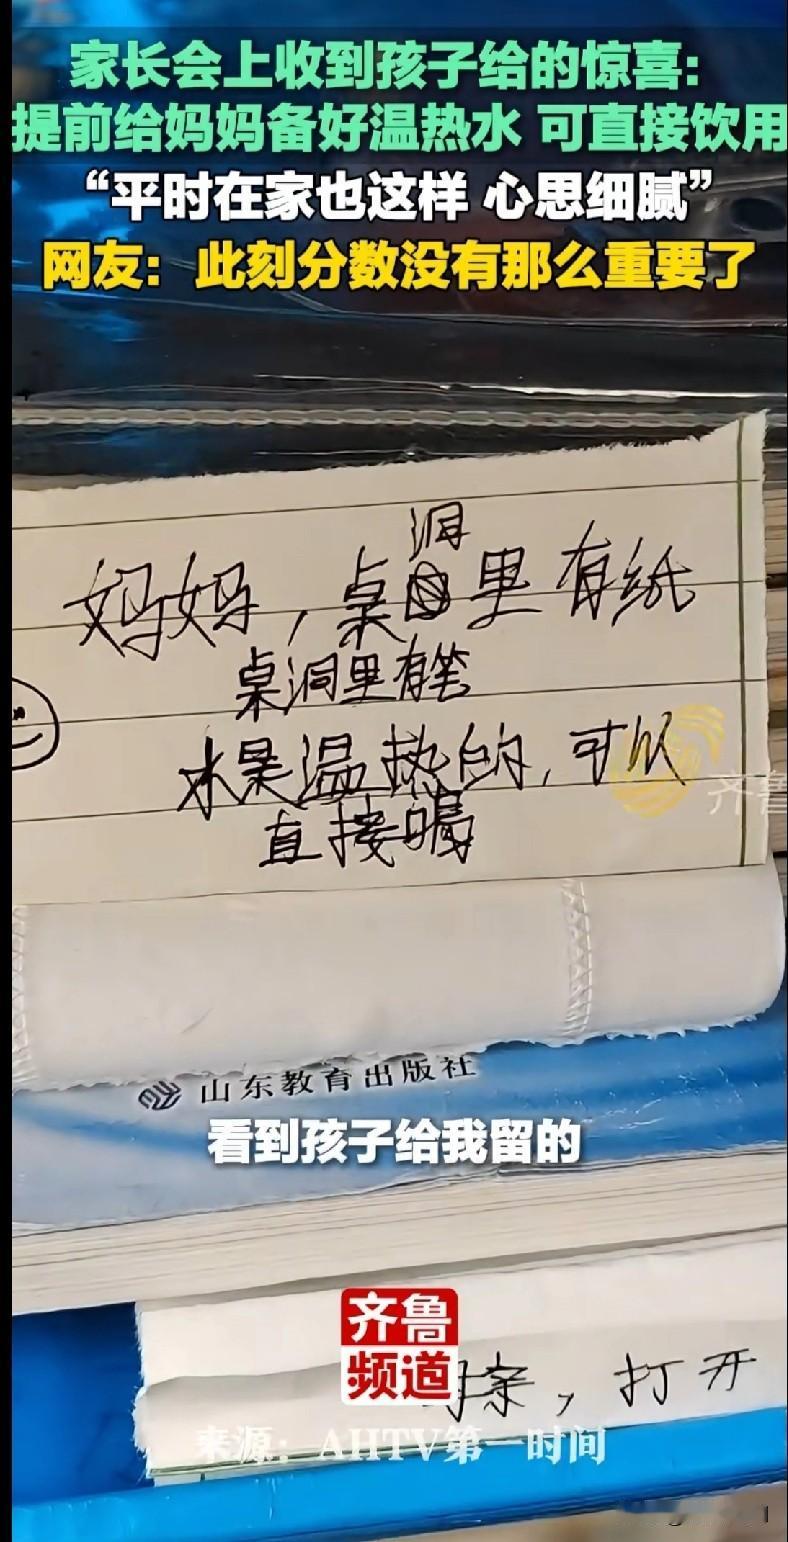 家长会上收到孩子给的惊喜:
提前给妈妈备好温热水 可直接饮用
“平时在家也这样 心思细腻”
网友：此刻分数没有那么重要了
洞
妈妈，桌里有纸
桌洞里有笔
水是温热的，可以
直接喝
齐鲁
山东教育出版社
看到孩子给我留的
齐鲁
频道
母亲，打开
来源：AHTV第一时间